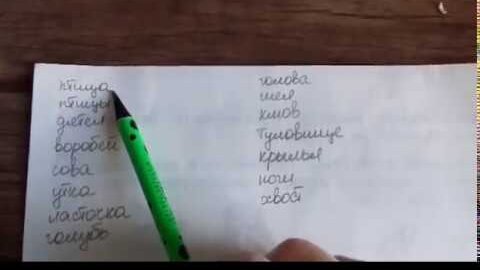 птица
птицы
дятел
воробей
сова
утка
ласточка
голубь
голова
шея
клюв
туловище
крылья
ноги
хвост